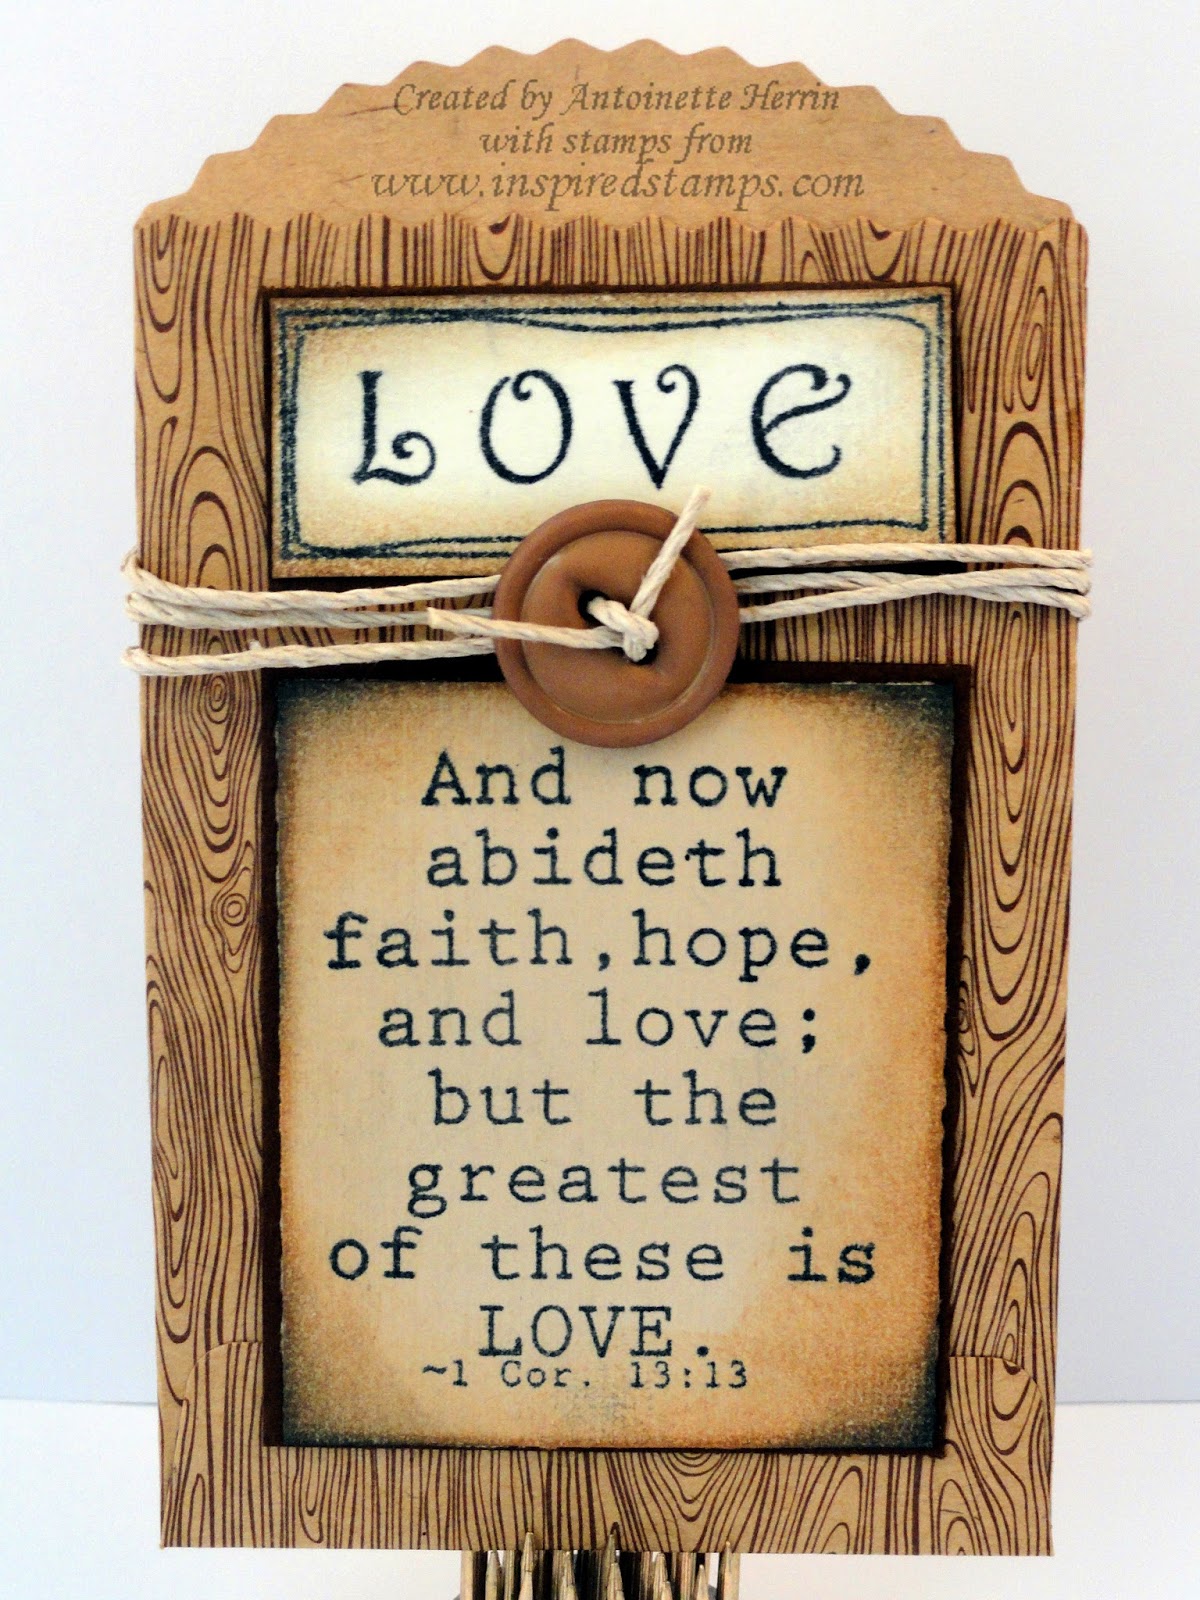 Created by Antoinette Herrin
with stamps from
www.inspiredstamps.com
LOVe
And now
abideth
faith,hope,
and love;
but the
greatest
of these is
LOVE.
~1 Cor. 13:13